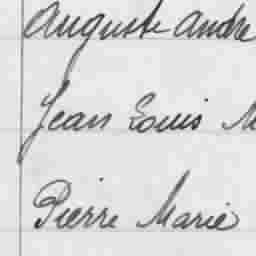 Auguste Andre
Jean Louis M
Pierre Marie